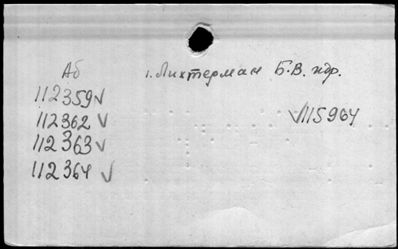 Аб 1. Лихтерман Б.В. кдр.
112359✓
112362✓ ✓115964
112363✓
112364✓